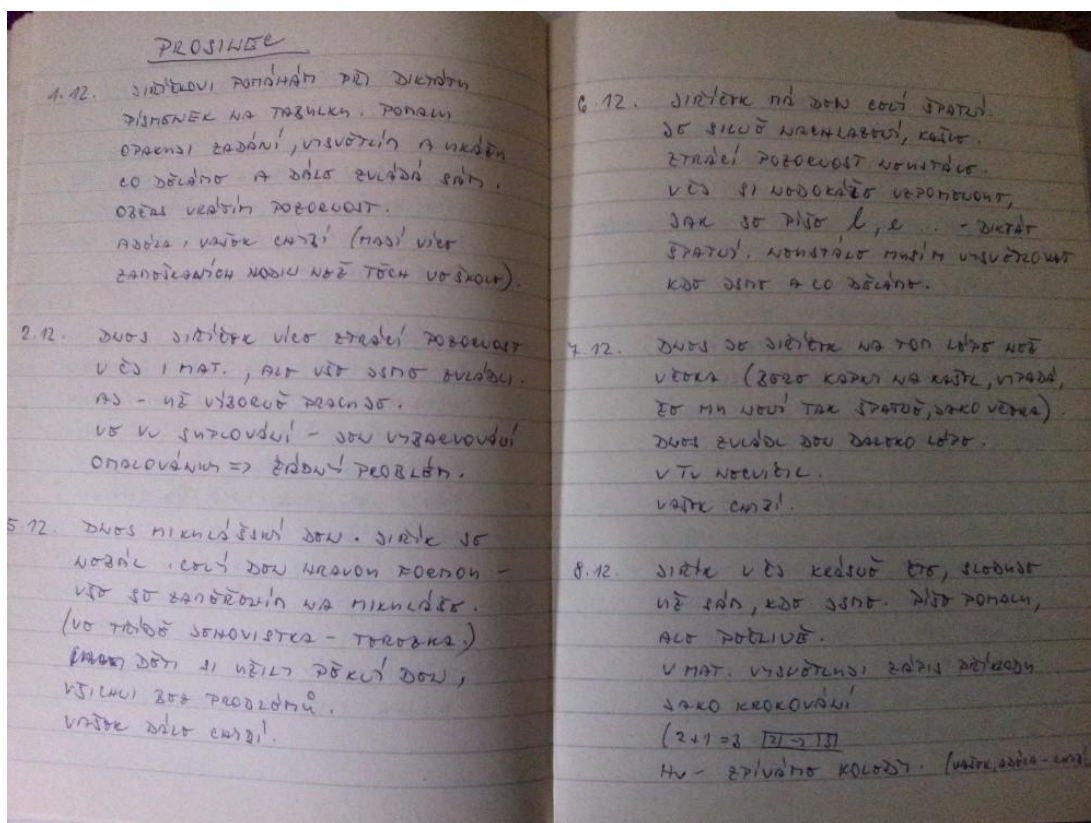 PROSINEC
1.12. JIŘÍČKOVI POMÁHÁM PŘI DIKTÁTU
PÍSMENEK NA TABULKU. POMALU
OPAKUJI ZADÁNÍ, VYSVĚTLÍM A UKÁŽU
CO DĚLÁME A DÁLE ZVLÁDÁ SÁM.
OBČAS VRÁTÍM POZORNOST.
ADÉLA, VAŠEK CHYBÍ (MAJÍ VÍCE
ZAMEŠKANÝCH HODIN NEŽ TĚCH VE ŠKOLE).
2.12. DNES JIŘÍČEK VÍCE ZTRÁCÍ POZORNOST
V ČJ I MAT., ALE VŠE JSME ZVLÁDLI.
AJ - UŽ VÝBORNĚ PRACUJE.
VE VV SUPLOVÁNÍ - JEN VYBARVOVÁNÍ
OMALOVÁNKY => ŽÁDNÝ PROBLÉM.
5.12. DNES MIKULÁŠSKÝ DEN. JIŘÍK SE
NEBÁL. CELÝ DEN HRAVOU FORMOU -
VŠE SE ZAMĚŘOVÍM NA MIKULÁŠE.
(VE TŘÍDĚ JENOVISTKA - TEREZKA.)
DĚTI SI UŽILY PĚKNÝ DEN,
VŠICHNI BEZ PROBLÉMŮ.
VAŠEK DÁLE CHYBÍ.
6.12. JIŘÍČEK MÁ DEN CELÝ ŠPATNÝ.
JE SILNĚ NACHLAZENÝ, KAŠLE.
ZTRÁCÍ POZORNOST NEUSTÁLE.
V ČJ SI NEDOKÁŽE VZPOMENOUT,
JAK SE PÍŠE l, e ... - DIKTÁT
ŠPATNÝ. NEUSTÁLE MUSÍM VYSVĚTLOVAT
KDE JSME A CO DĚLÁME.
7.12. DNES JE JIŘÍČEK NA TOM LÉPE NEŽ
VČERA (BERE KAPKY NA KAŠEL, VYPADÁ,
ŽE MU NENÍ TAK ŠPATNĚ, JAKO VČERA).
DNES ZVLÁDL DEN DALEKO LÉPE.
V TV NECVIČIL.
VAŠEK CHYBÍ.
8.12. JIŘÍK V ČJ KRÁSNĚ ČTE, SLEDUJE
UŽ SÁM, KDE JSME. PÍŠE POMALU,
ALE PEČLIVĚ.
V MAT. VYSVĚTLUJI ZÁPIS PŘÍKLADU
JAKO KROKOVÁNÍ
(2+1=3 |2|→|3|
HV - ZPÍVÁME KOLEDY. (VAŠEK, ADÉLA - CHYBÍ)